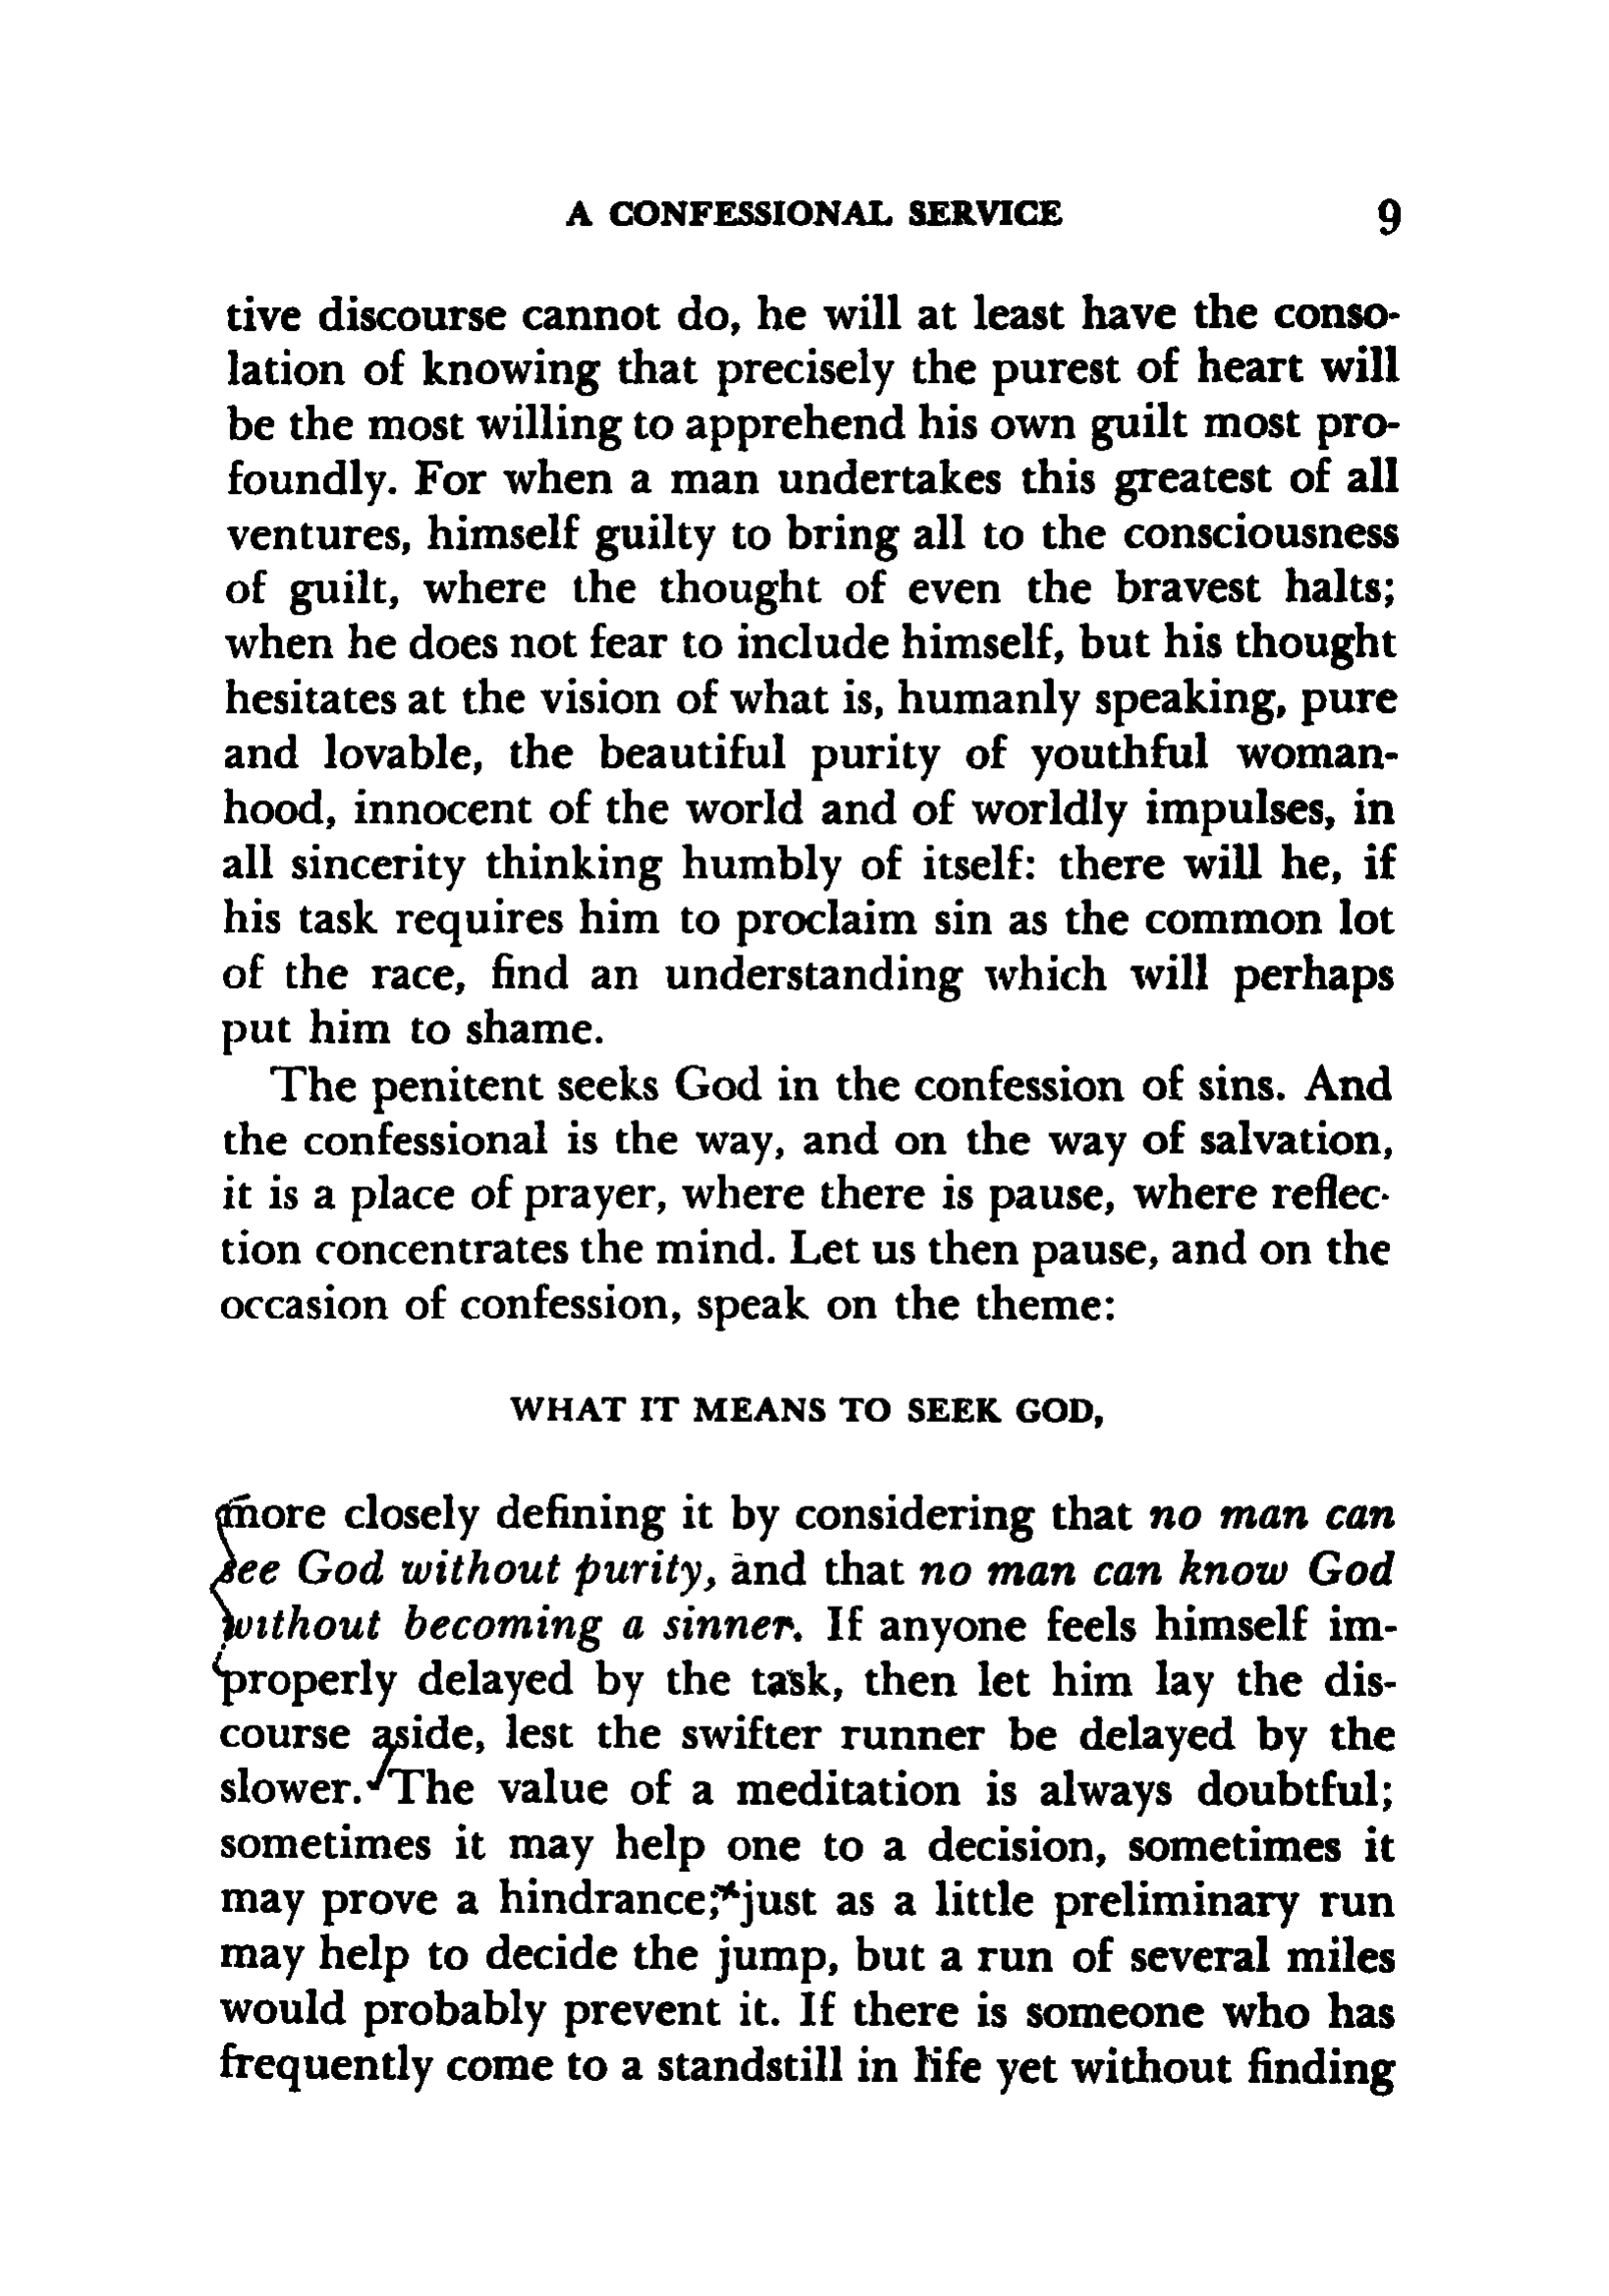 A CONFESSIONAL SERVICE 9
tive discourse cannot do, he will at least have the conso-
lation of knowing that precisely the purest of heart will
be the most willing to apprehend his own guilt most pro-
foundly. For when a man undertakes this greatest of all
ventures, himself guilty to bring all to the consciousness
of guilt, where the thought of even the bravest halts;
when he does not fear to include himself, but his thought
hesitates at the vision of what is, humanly speaking, pure
and lovable, the beautiful purity of youthful woman-
hood, innocent of the world and of worldly impulses, in
all sincerity thinking humbly of itself: there will he, if
his task requires him to proclaim sin as the common lot
of the race, find an understanding which will perhaps
put him to shame.
The penitent seeks God in the confession of sins. And
the confessional is the way, and on the way of salvation,
it is a place of prayer, where there is pause, where reflec-
tion concentrates the mind. Let us then pause, and on the
occasion of confession, speak on the theme:
WHAT IT MEANS TO SEEK GOD,
more closely defining it by considering that no man can
see God without purity, and that no man can know God
without becoming a sinner. If anyone feels himself im-
properly delayed by the task, then let him lay the dis-
course aside, lest the swifter runner be delayed by the
slower. The value of a meditation is always doubtful;
sometimes it may help one to a decision, sometimes it
may prove a hindrance; just as a little preliminary run
may help to decide the jump, but a run of several miles
would probably prevent it. If there is someone who has
frequently come to a standstill in life yet without finding